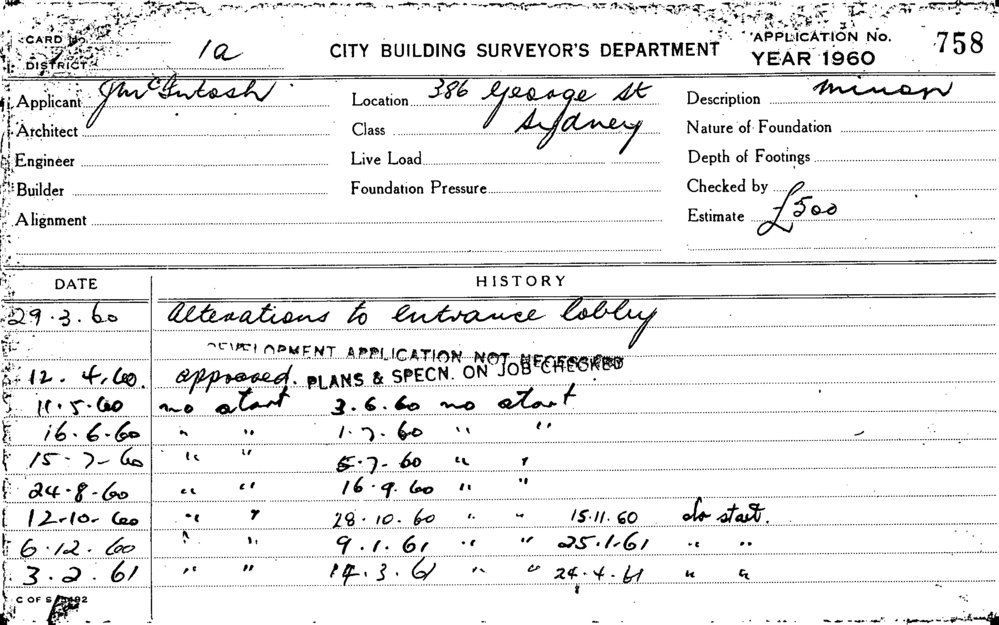 CARD No.
DISTRICT 1a
CITY BUILDING SURVEYOR'S DEPARTMENT
APPLICATION No. 758
YEAR 1960
Applicant J McIntosh Location 386 George St Description minor
Architect Class Sydney Nature of Foundation
Engineer Live Load Depth of Footings
Builder Foundation Pressure Checked by
Alignment Estimate £500
DATE HISTORY
29.3.60 Alterations to entrance lobby
DEVELOPMENT APPLICATION NOT NECESSARY
12.4.60. approved. PLANS & SPECN. ON JOB CHECKED
11.5.60 no start 3.6.60 no start
16.6.60 " " 1.7.60 " "
15-7-60 " " 5.7.60 " "
24.8.60 " " 16.9.60 " "
12.10.60 " " 28.10.60 " " 15.11.60 do start.
6.12.60 " " 9.1.61 " " 25.1.61 " "
3.2.61 " " 14.3.61 " " 24.4.61 " "
C OF S